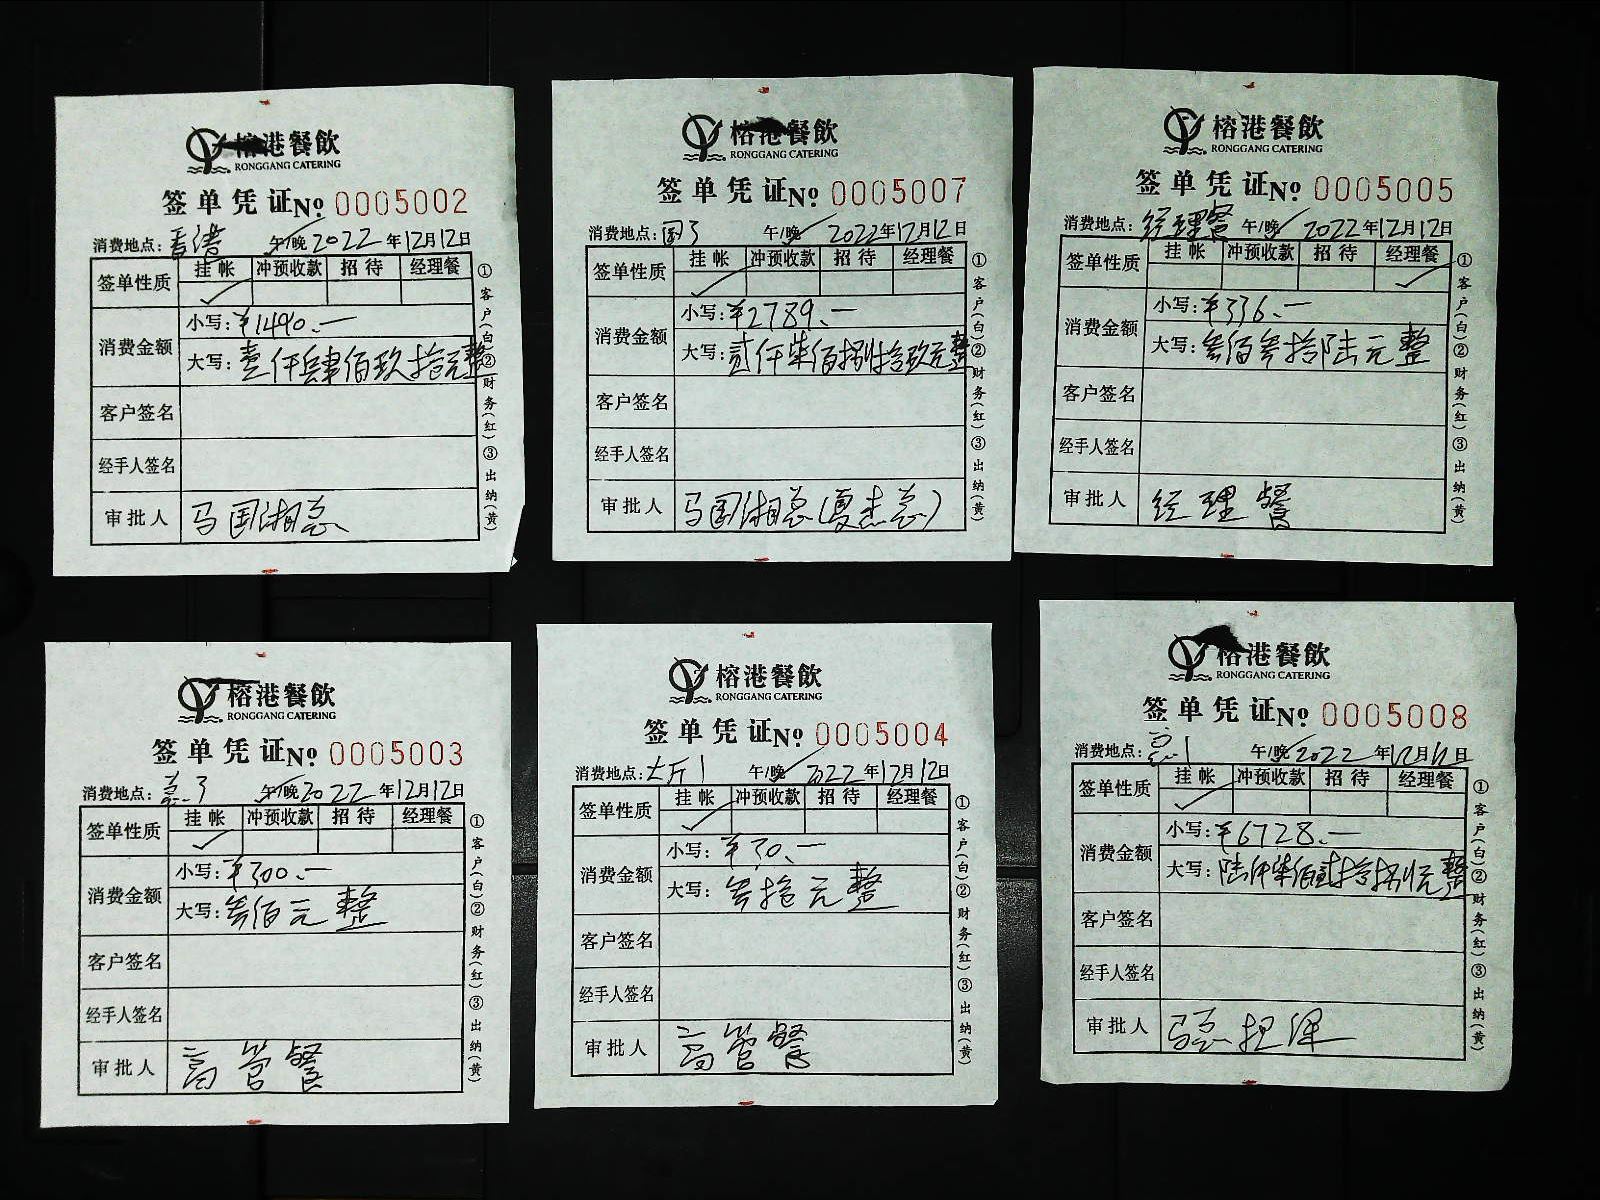 榕港餐飲
RONGGANG CATERING
签单凭证 No 0005002
消费地点：香港 午/晚 2022年12月12日
签单性质 挂帐 冲预收款 招待 经理餐
消费金额
小写：¥1490.一
大写：壹仟肆佰玖拾元整
客户签名
经手人签名
审批人 马国湘总
①客户(白)②财务(红)③出纳(黄)
榕港餐飲
RONGGANG CATERING
签单凭证 No 0005007
消费地点：国3 午/晚 2022年12月12日
签单性质 挂帐 冲预收款 招待 经理餐
消费金额
小写：¥2789.一
大写：贰仟柒佰捌拾玖元整
客户签名
经手人签名
审批人 马国湘总(夏杰总)
①客户(白)②财务(红)③出纳(黄)
榕港餐飲
RONGGANG CATERING
签单凭证 No 0005005
消费地点：经理餐 午/晚 2022年12月12日
签单性质 挂帐 冲预收款 招待 经理餐
消费金额
小写：¥336.一
大写：叁佰叁拾陆元整
客户签名
经手人签名
审批人 经理餐
①客户(白)②财务(红)③出纳(黄)
榕港餐飲
RONGGANG CATERING
签单凭证 No 0005003
消费地点：总3 午/晚 2022年12月12日
签单性质 挂帐 冲预收款 招待 经理餐
消费金额
小写：¥300.一
大写：叁佰元整
客户签名
经手人签名
审批人 高管餐
①客户(白)②财务(红)③出纳(黄)
榕港餐飲
RONGGANG CATERING
签单凭证 No 0005004
消费地点：大厅1 午/晚 2022年12月12日
签单性质 挂帐 冲预收款 招待 经理餐
消费金额
小写：¥30.一
大写：叁拾元整
客户签名
经手人签名
审批人 高管餐
①客户(白)②财务(红)③出纳(黄)
榕港餐飲
RONGGANG CATERING
签单凭证 No 0005008
消费地点：总1 午/晚 2022年12月12日
签单性质 挂帐 冲预收款 招待 经理餐
消费金额
小写：¥6728.一
大写：陆仟柒佰贰拾捌元整
客户签名
经手人签名
审批人 马总担保
①客户(白)②财务(红)③出纳(黄)